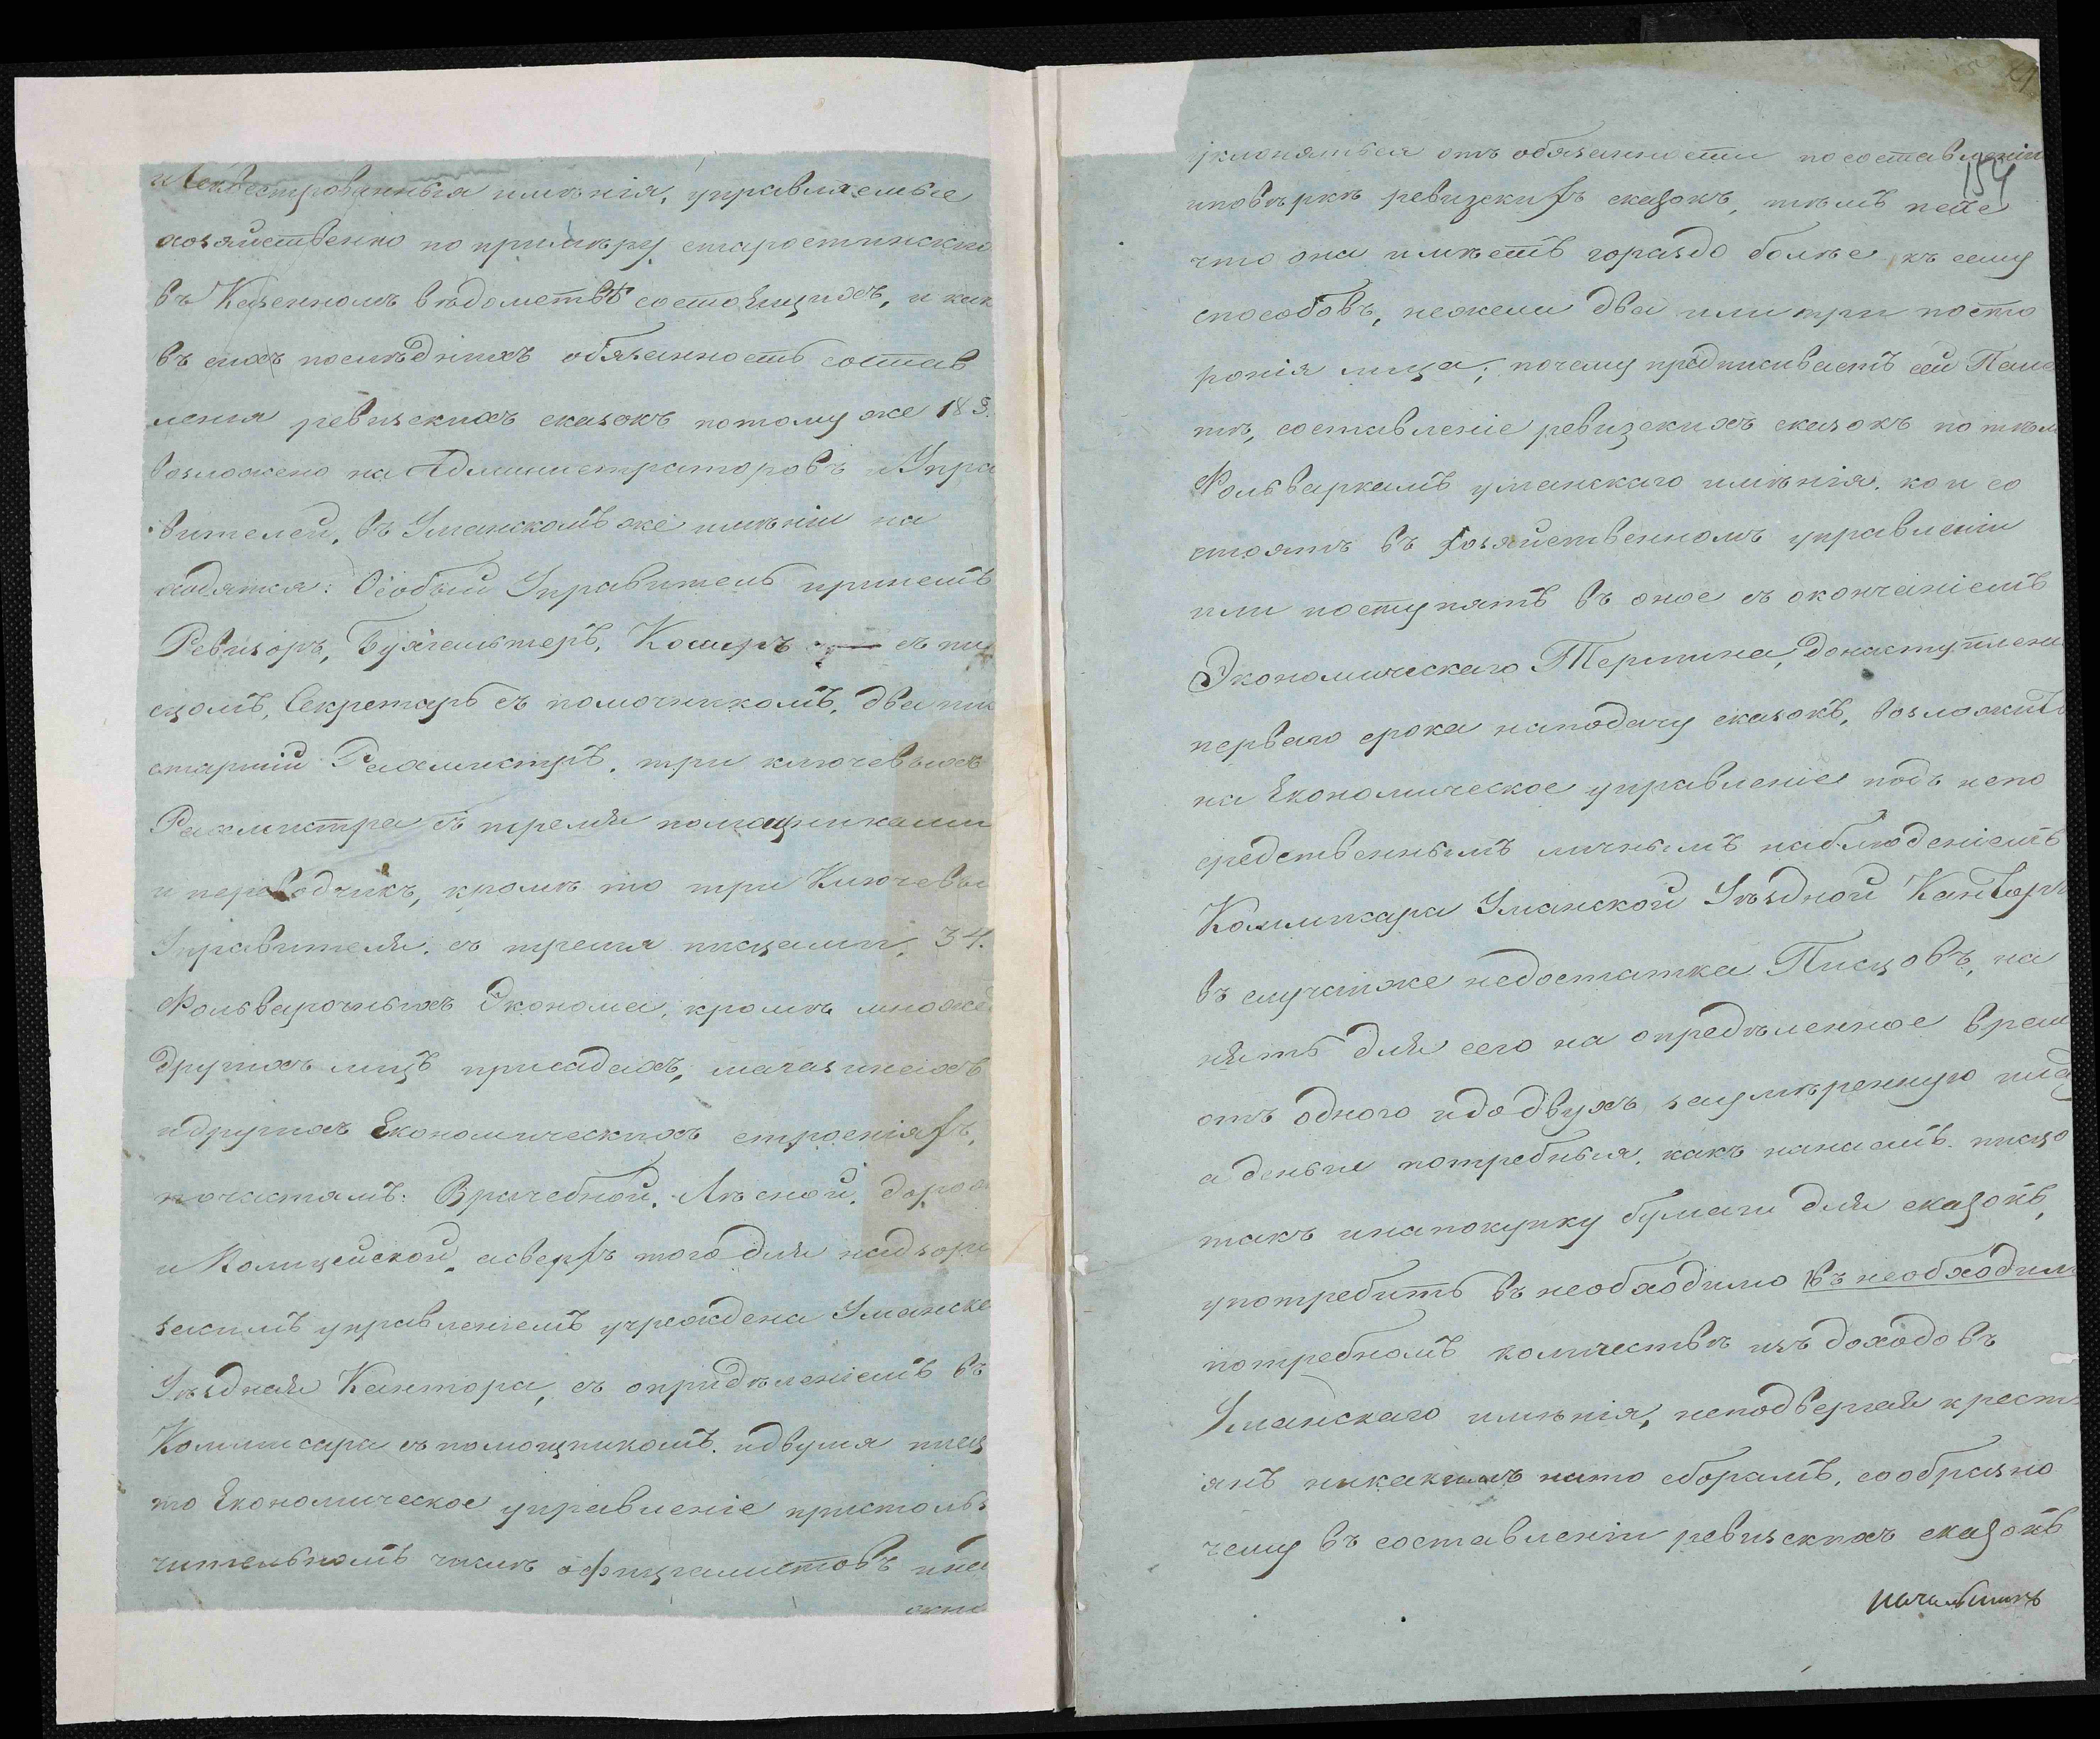 и Секвестрованныя имѣнія, управляемые
хозяйственно по примѣру старостинских
въ Казенномъ вѣдометвѣ состоящихъ, и как
въ сихъ послѣднихъ обязанность состав
ления ревизскихъ сказокъ потому же 183.
возложено на Администраторовъ и Упра
вителей, въ Уманскомъ же имѣніи на
ходятся: Особый Управитель принемъ
Ревизоръ, Бухгальтеръ, Косиръ съ пи
сцомъ, Секретарь съ помочникомъ, два пис
старшій Рахмистръ, три ключевыхъ
Рахмистра съ тремя помощниками
и переводчикъ, кромѣ то три Ключевы
Управителя, съ тремя писцами, 34.
Фольварочныхъ Эконома, кромѣ множес
другихъ лицъ присадахъ, магазинахъ
идругихъ Економическихъ строеніяхъ,
почастямъ: Врачебной, Лѣсной, дорож
и Полицейской, асверхъ того для надзора
засимъ управленіемъ учреждена Уманска
Уѣздная Кантора, съ опридѣленіемъ въ
Коммисара съ помощникомъ, идвумя писц
то Економическое управленіе пристоль
чительномъ числѣ офицгалистовъ
154
уклоняться отъ обязанности посоставленію
иповѣркѣ ревизскихъ сказокъ, тѣмъ пače
что она имѣетъ гораздо болѣе къ сему
способовъ, нежели два или три посто
ронія лица; почему предписываетъ сей Пала
тѣ, составленіе ревизскихъ сказокъ по тѣмъ
Фольваркамъ уманскаго имѣнія, кои со
стоятъ въ хозяйственномъ управленіи
или поступятъ въ оное съ окончаніемъ
Экономическаго Термина, донаступлені
перваго срока наподачу сказокъ, возложить
на Економическое управленіе подъ непо
средственнымъ личнымъ наблюденіемъ
Коммисара Уманской Уѣздной Канторы
въ случаѣже недостатка Писцовъ, на
нять для сего на опредѣленное врем
отъ одного идодвухъ заумѣренную
а деньги потребныя, какъ нанаемъ писцо
такъ инапокупку бумаги для сказокъ,
употребить въ необходимо въ необходим
потребномъ количествѣ изъ доходовъ
Уманскаго имѣнія, неподвергая крест
янъ никакимъ нато сборамъ, сообразно
чему въ составленіи ревизскихъ сказокъ